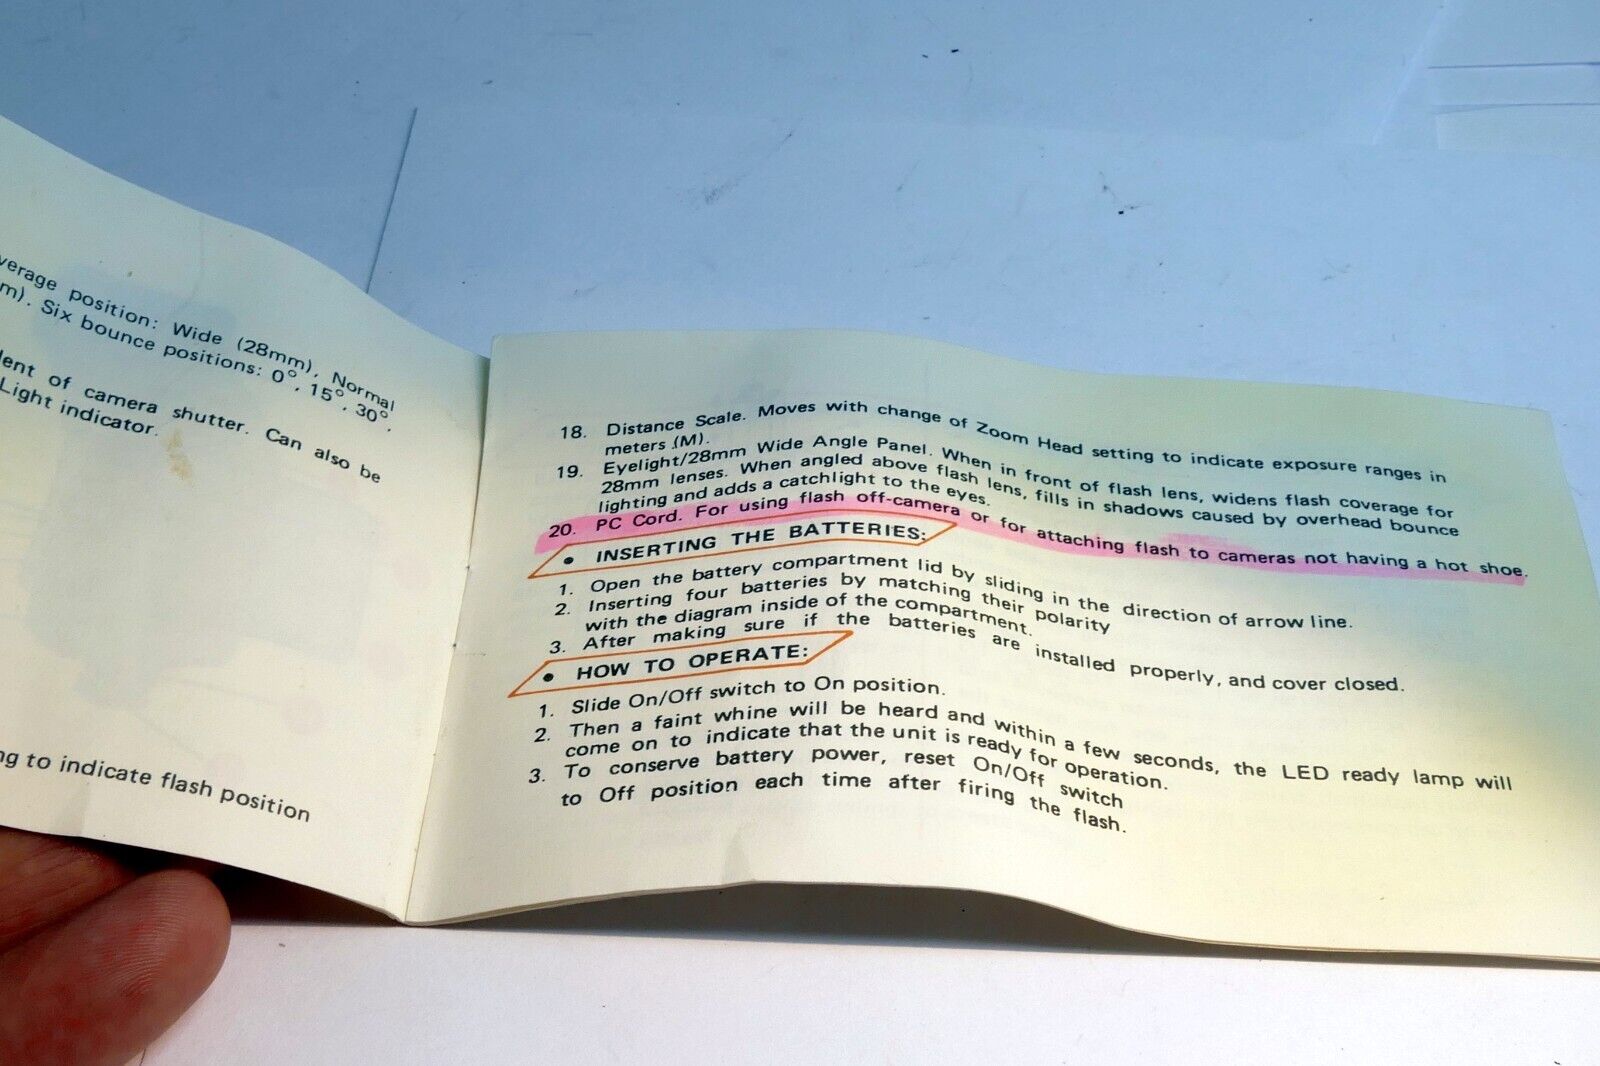 verage position: Wide (28mm), Normal
m). Six bounce positions: 0°, 15°, 30°,
lent of camera shutter. Can also be
Light indicator.
ng to indicate flash position
18. Distance Scale. Moves with change of Zoom Head setting to indicate exposure ranges in
meters (M).
19. Eyelight/28mm Wide Angle Panel. When in front of flash lens, widens flash coverage for
28mm lenses. When angled above flash lens, fills in shadows caused by overhead bounce
lighting and adds a catchlight to the eyes.
20. PC Cord. For using flash off-camera or for attaching flash to cameras not having a hot shoe.
• INSERTING THE BATTERIES:
1. Open the battery compartment lid by sliding in the direction of arrow line.
2. Inserting four batteries by matching their polarity
with the diagram inside of the compartment.
3. After making sure if the batteries are installed properly, and cover closed.
• HOW TO OPERATE:
1. Slide On/Off switch to On position.
2. Then a faint whine will be heard and within a few seconds, the LED ready lamp will
come on to indicate that the unit is ready for operation.
3. To conserve battery power, reset On/Off switch
to Off position each time after firing the flash.